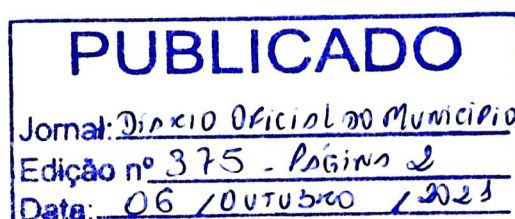 PUBLICADO
Jornal: DIARIO OFICIAL DO MUNICIPIO
Edição nº 375 - PÁGINA 2
Data: 06 / OUTUBRO / 2021